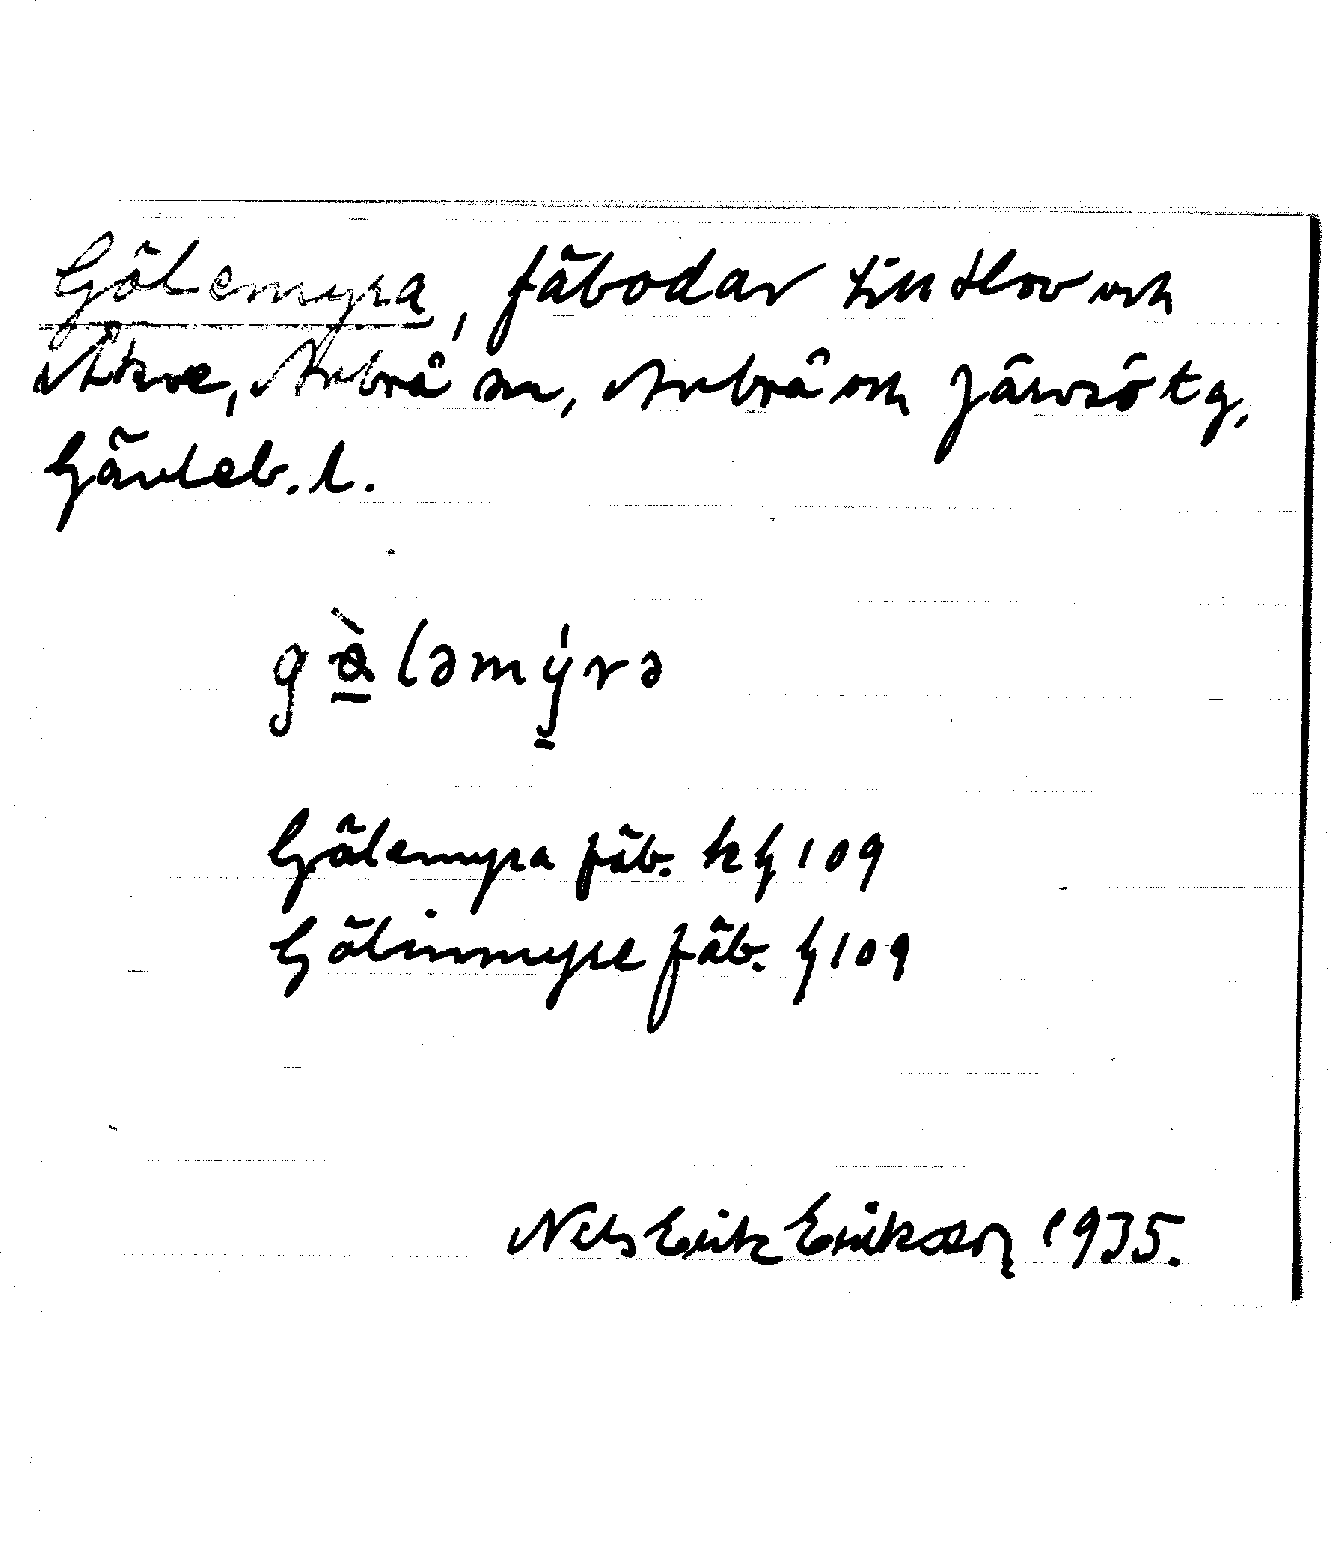 Gölemyra, fäbodar till Hov och
Åkre, Arbrå sn, Arbrå och Järvsö tg,
Gävleb. l.
gə̀ləmýrə
Gölemyra fäb. k G 109
Gölinmyre fäb. G 109
Nils Erik Eriksson 1935.